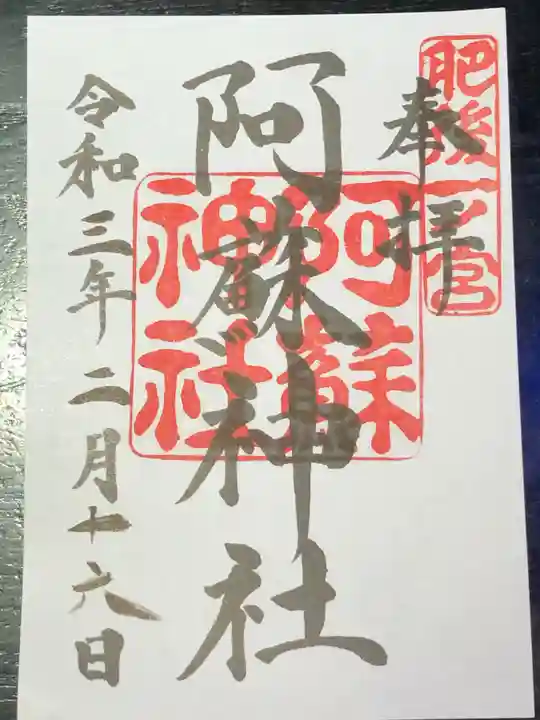 肥後一ノ宮
奉拝
阿蘇神社
阿蘇神社
令和三年二月十六日